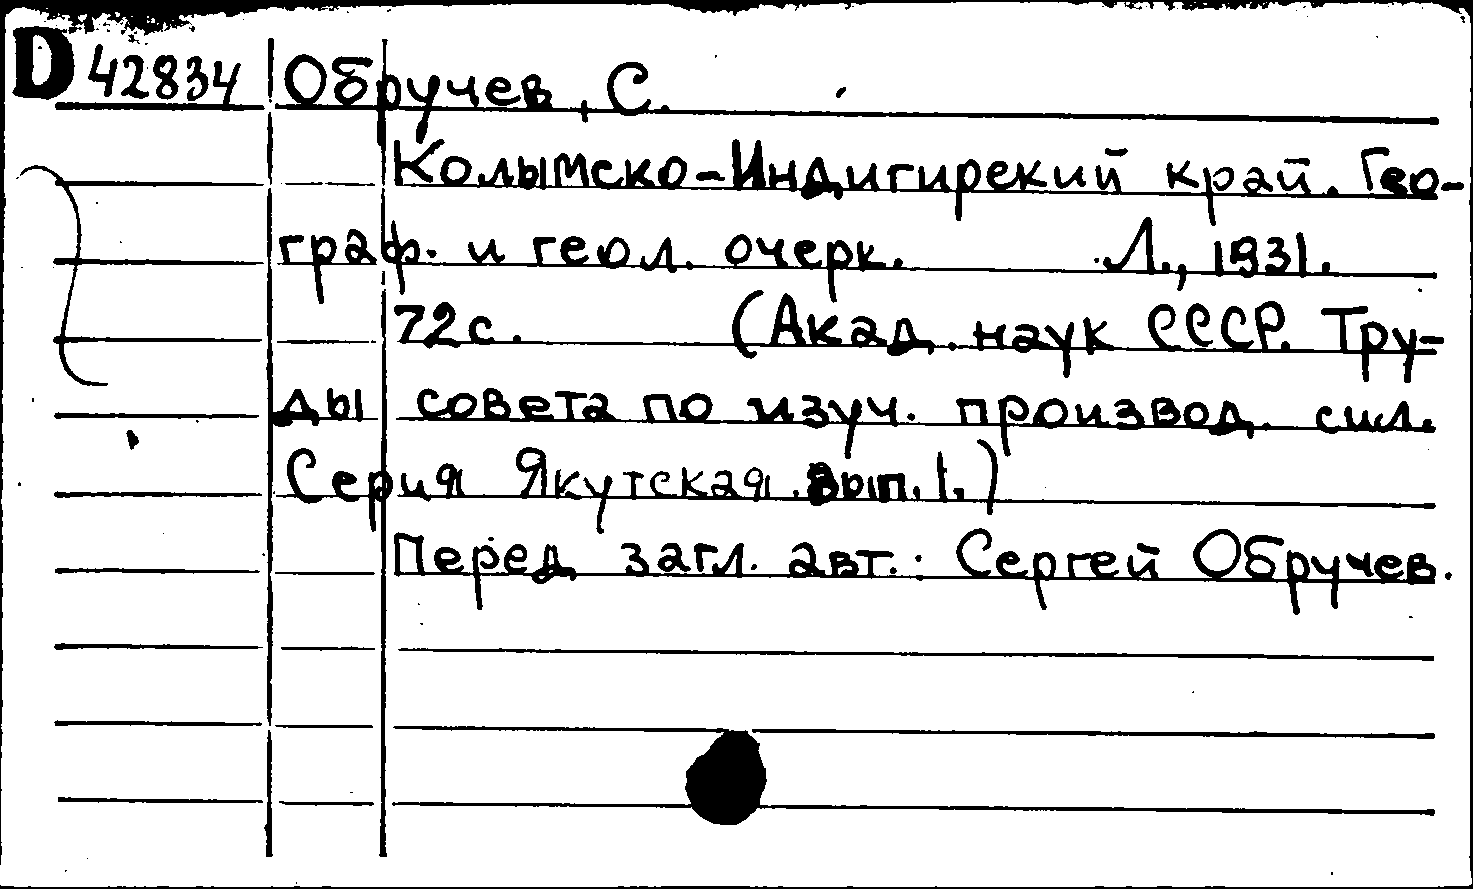 D 42834 Обручев, С.
Колымско-Индигирский край. Гео-
граф. и геол. очерк. Л., 1931.
72с. (Акад. наук СССР. Тру-
ды совета по изуч. производ. сил.
Серия Якутская. Вып. 1.)
Перед загл. авт.: Сергей Обручев.